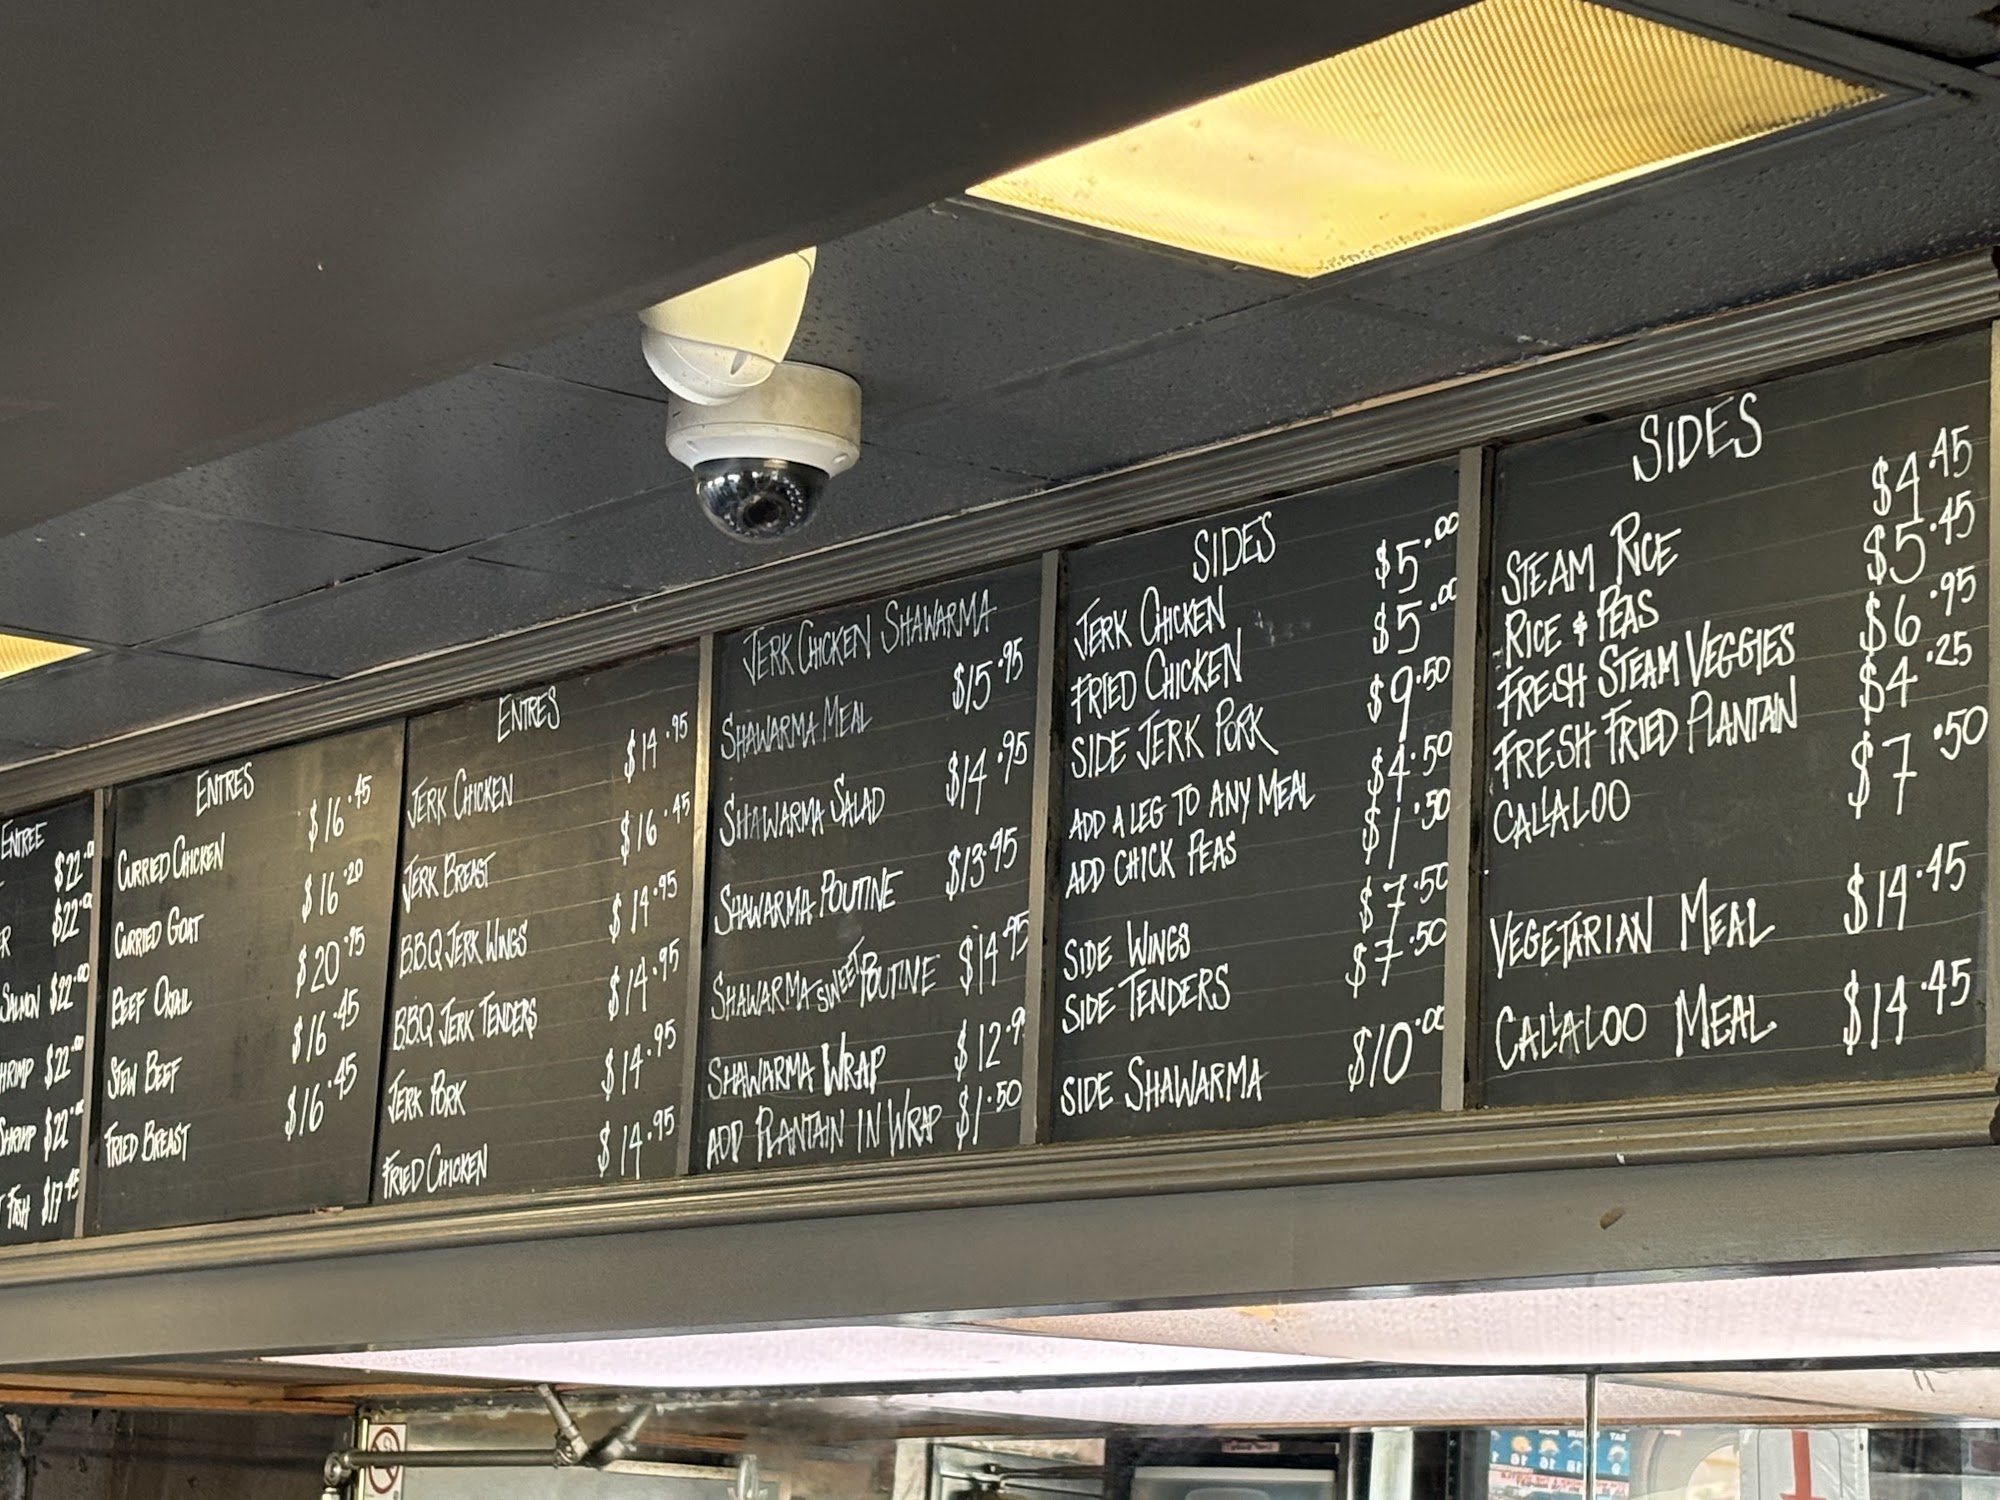 ENTREE
$22.0
$22.0
SALMON $22.00
$22.00
SHRIMP $22.00
FISH $17.45
ENTRES
CURRIED CHICKEN $16.45
CURRIED GOAT $16.20
BEEF OXTAIL $20.95
STEW BEEF $16.45
FRIED BREAST $16.45
ENTRES
JERK CHICKEN $14.95
JERK BREAST $16.45
B.B.Q JERK WINGS $14.95
B.B.Q JERK TENDERS $14.95
JERK PORK $14.95
FRIED CHICKEN $14.95
JERK CHICKEN SHAWARMA
SHAWARMA MEAL $15.95
SHAWARMA SALAD $14.95
SHAWARMA POUTINE $13.95
SHAWARMA SWEET POUTINE $14.95
SHAWARMA WRAP $12.9
ADD PLANTAIN IN WRAP $1.50
SIDES
JERK CHICKEN $5.00
FRIED CHICKEN $5.00
SIDE JERK PORK $9.50
ADD A LEG TO ANY MEAL $4.50
ADD CHICK PEAS $1.50
SIDE WINGS $7.50
SIDE TENDERS $7.50
SIDE SHAWARMA $10.00
SIDES
STEAM RICE $4.45
RICE & PEAS $5.45
FRESH STEAM VEGGIES $6.95
FRESH FRIED PLANTAIN $4.25
CALLALOO $7.50
VEGETARIAN MEAL $14.45
CALLALOO MEAL $14.45